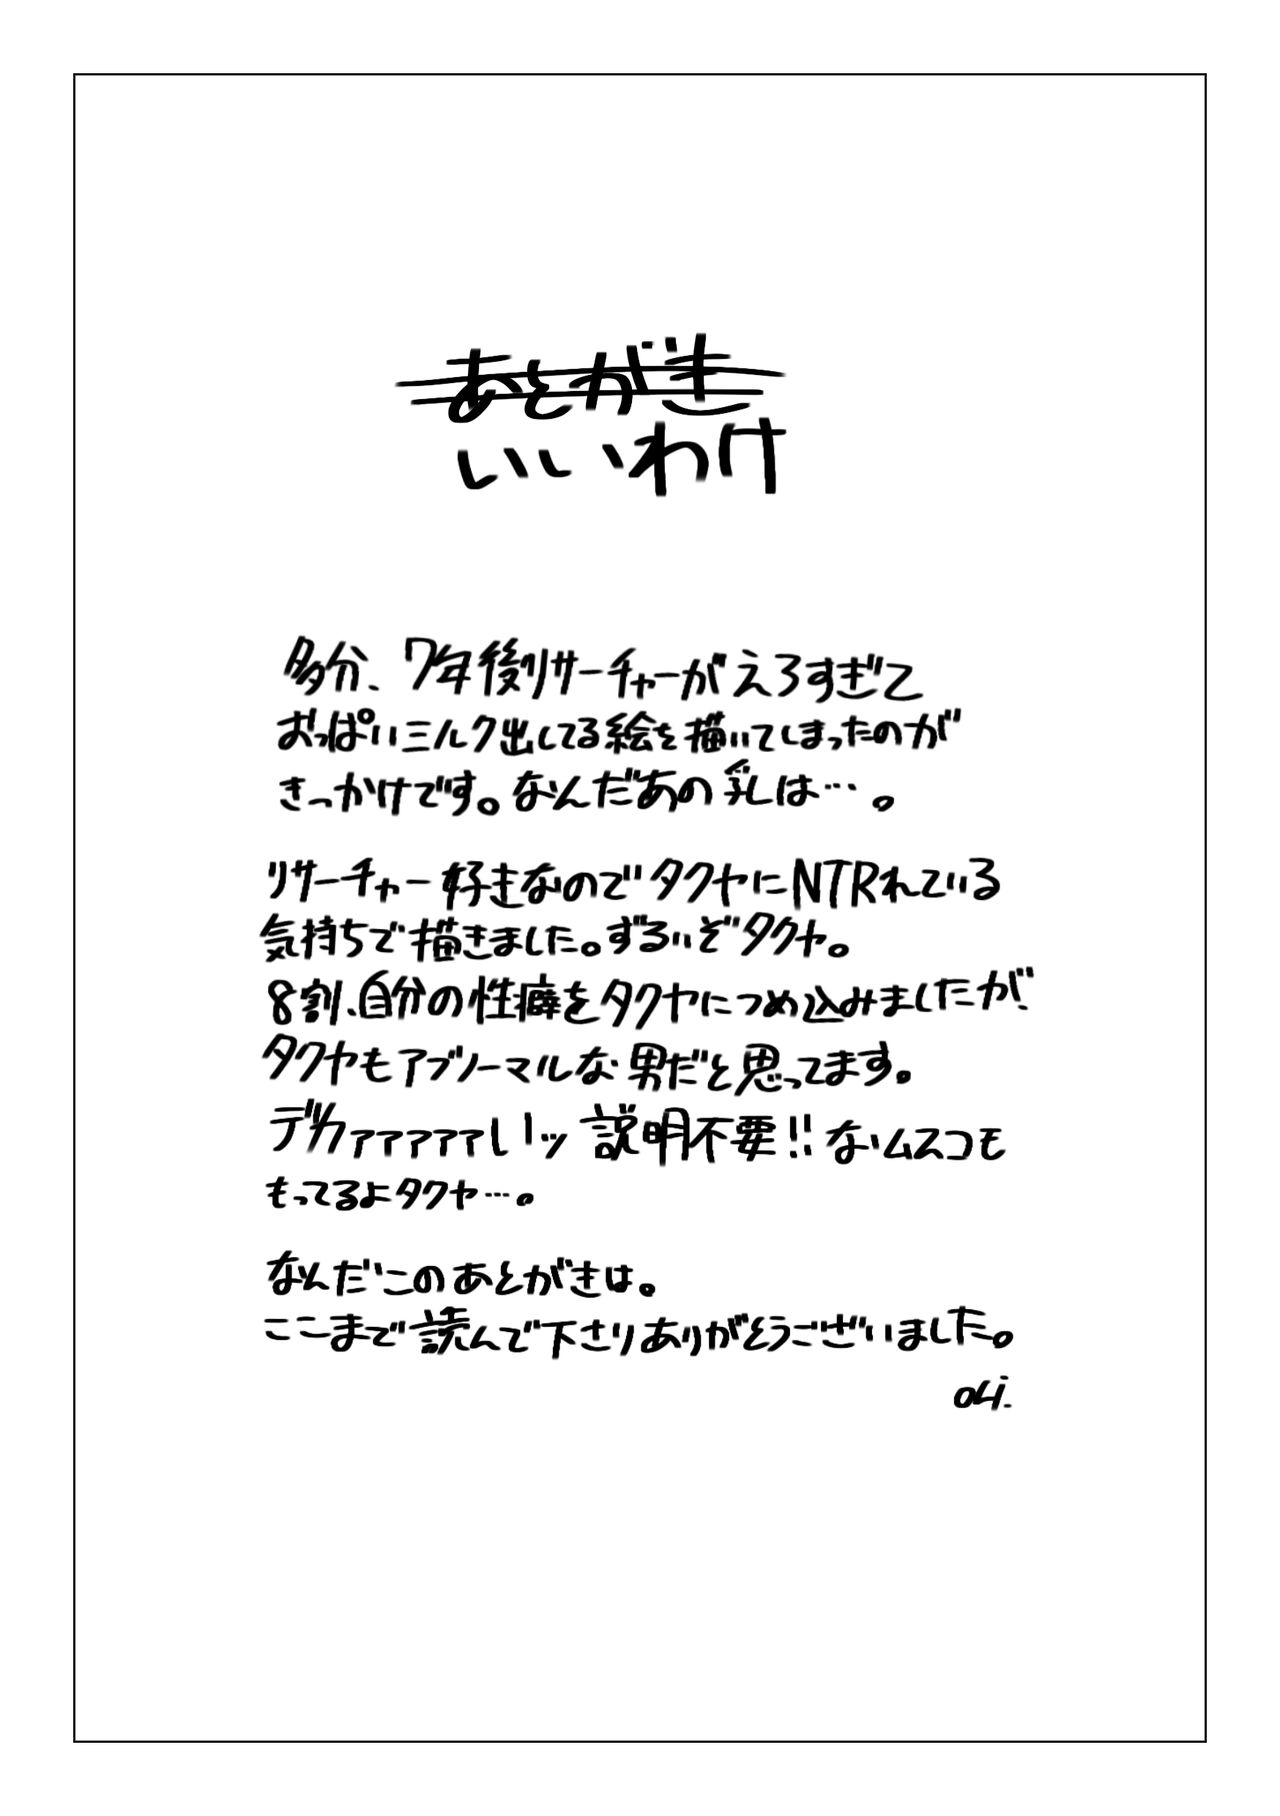 あとがき
いいわけ
多分、7年後リサーチャーがえろすぎて
おっぱいミルク出してる絵を描いてしまったのが
きっかけです。なんだあの乳は…。
リサーチャー好きなのでタクヤにNTRれている
気持ちで描きました。ずるいぞタクヤ。
8割、自分の性癖をタクヤにつめ込みましたが、
タクヤもアブノーマルな男だと思ってます。
デカァァァァァいッ 説明不要!! なムスコも
もってるよタクヤ…。
なんだこのあとがきは。
ここまで読んで下さりありがとうございました。